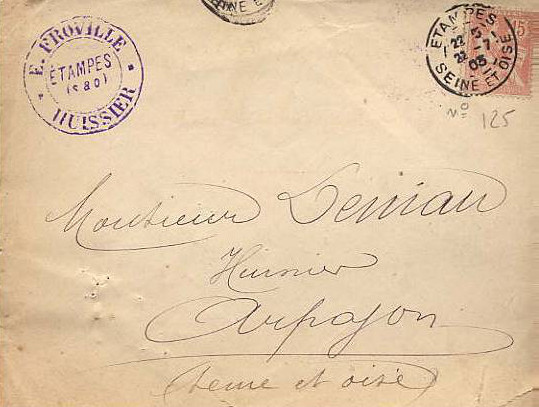 E. FROVILLE
ÉTAMPES
(S & O)
HUISSIER
INE E
ETAMPES
22 -7
03
SEINE ET OISE
15
No 125
Monsieur Deniau
Huissier
Arpajon
(Seine et oise)